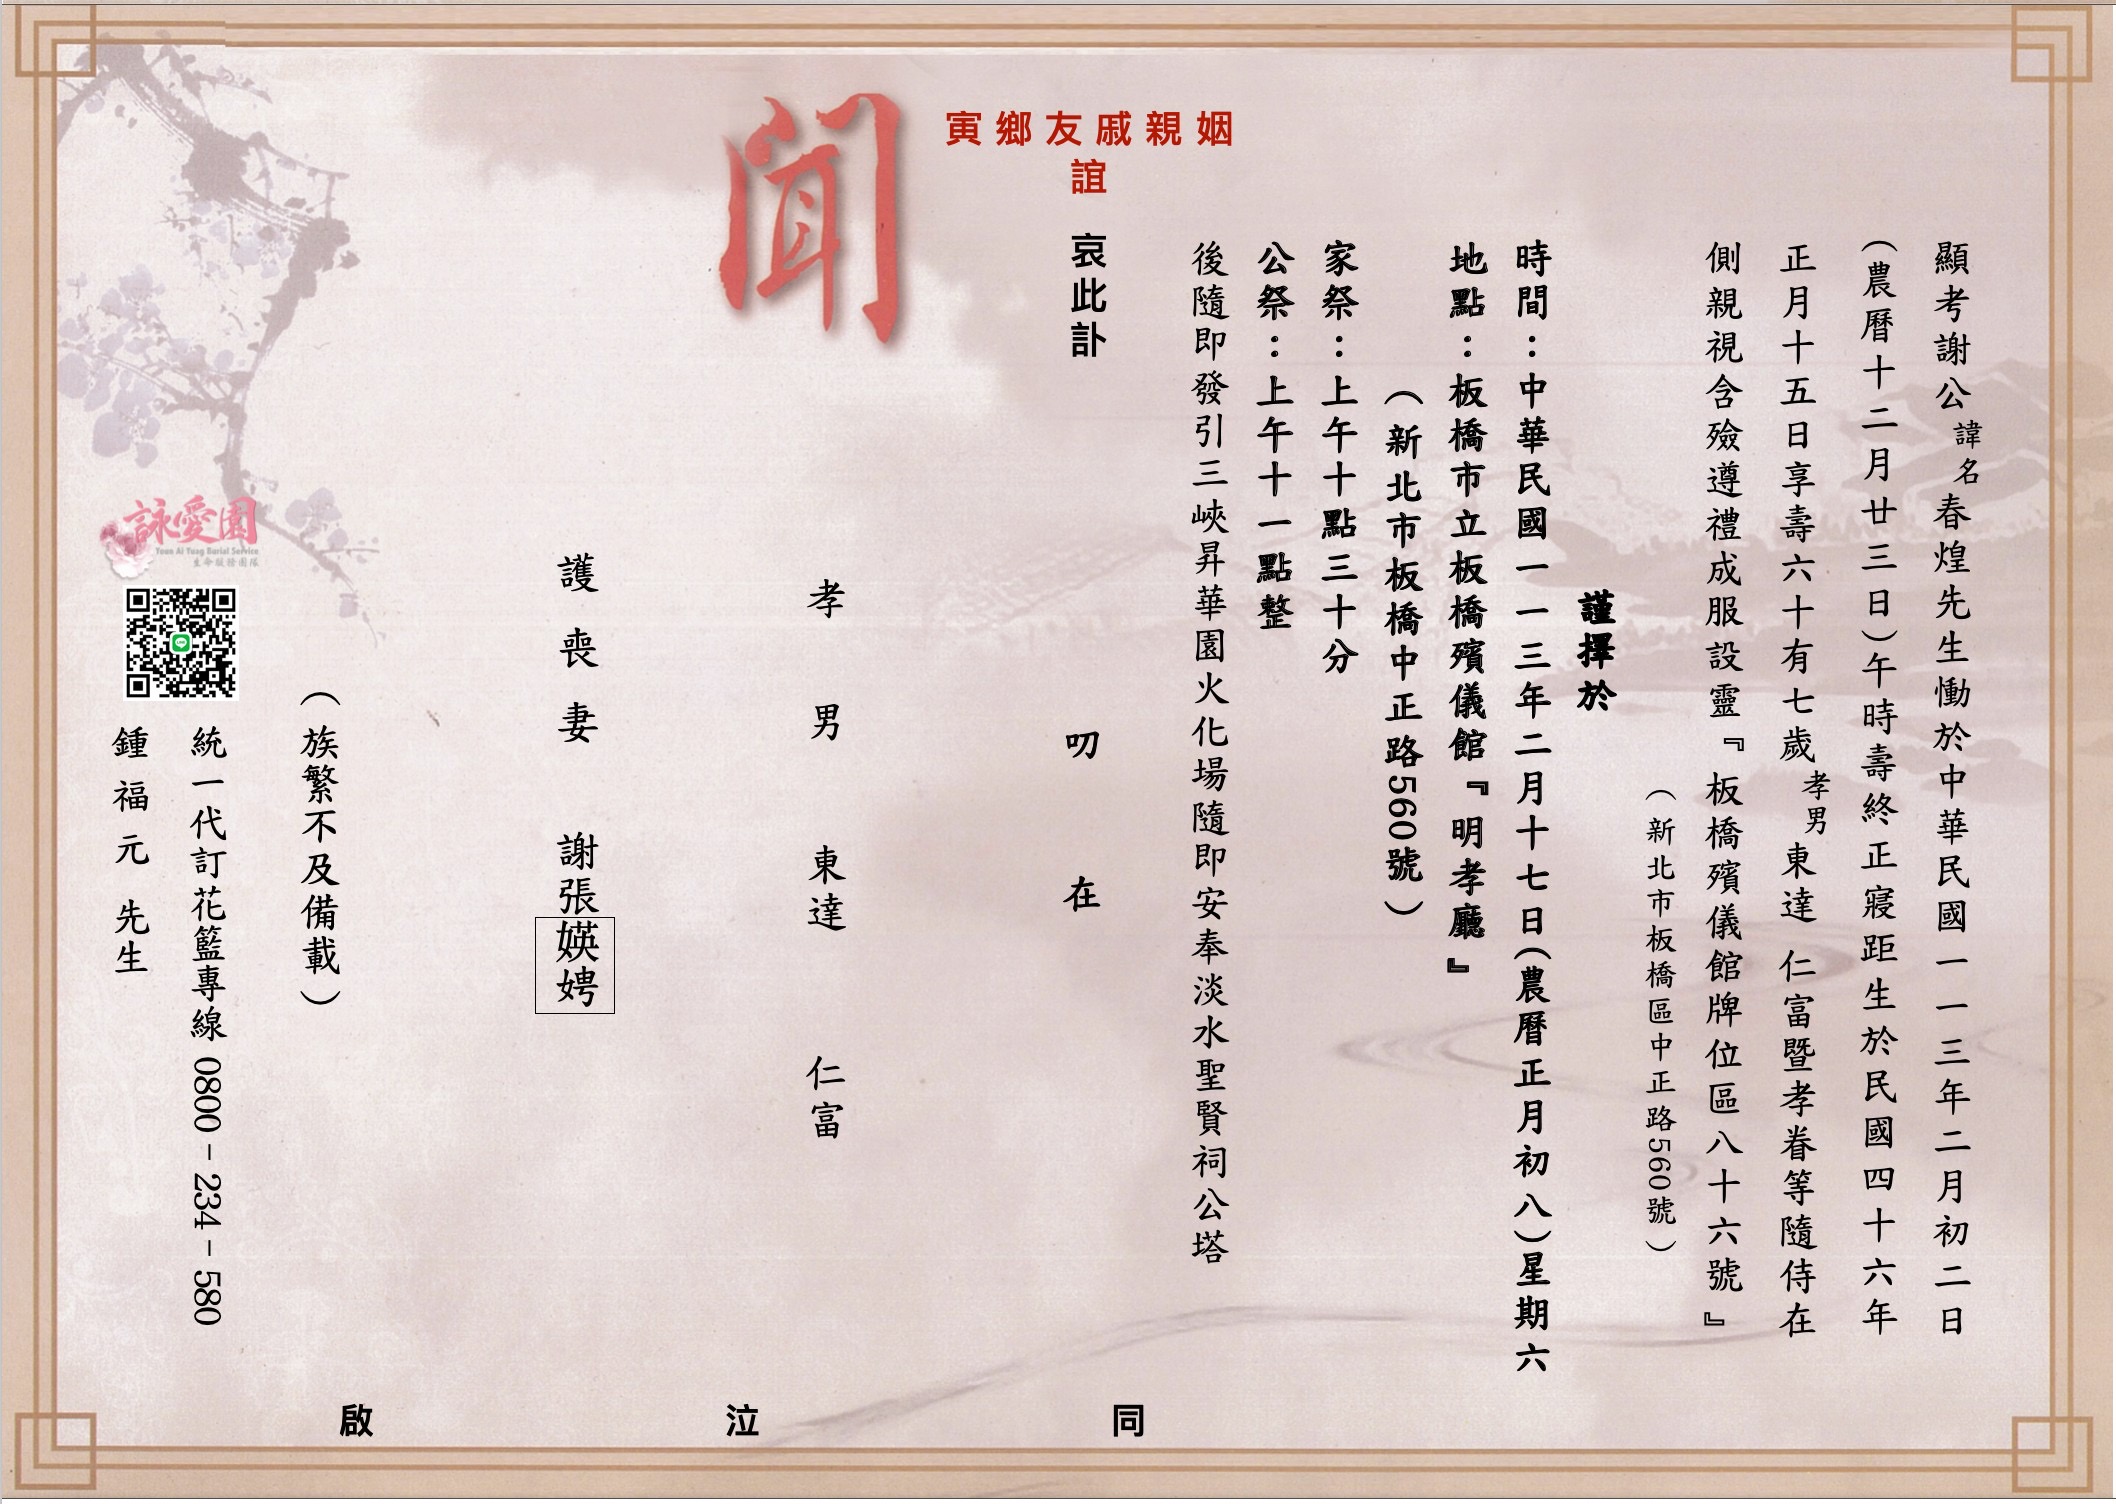 顯考謝公諱名春煌先生慟於中華民國一一三年二月初二日
(農曆十二月廿三日)午時壽終正寢距生於民國四十六年
正月十五日享壽六十有七歲孝男東達 仁富暨孝眷等隨侍在
側親視含殮遵禮成服設靈『板橋殯儀館牌位區八十六號』
(新北市板橋區中正路560號)
謹擇於
時間:中華民國一一三年二月十七日(農曆正月初八)星期六
地點:板橋市立板橋殯儀館『明孝廳』
(新北市板橋中正路560號)
家祭:上午十點三十分
公祭:上午十一點整
後隨即發引三峽昇華園火化場隨即安奉淡水聖賢祠公塔
叨 在
姻親戚友鄉寅
誼
哀此訃
聞
孝男 東達 仁富
護喪妻 謝張媖娉
(族繁不及備載)
同 泣 啟
詠愛園
Youn Ai Yung Burial Service
統一代訂花籃專線 0800-234-580
鍾福元 先生